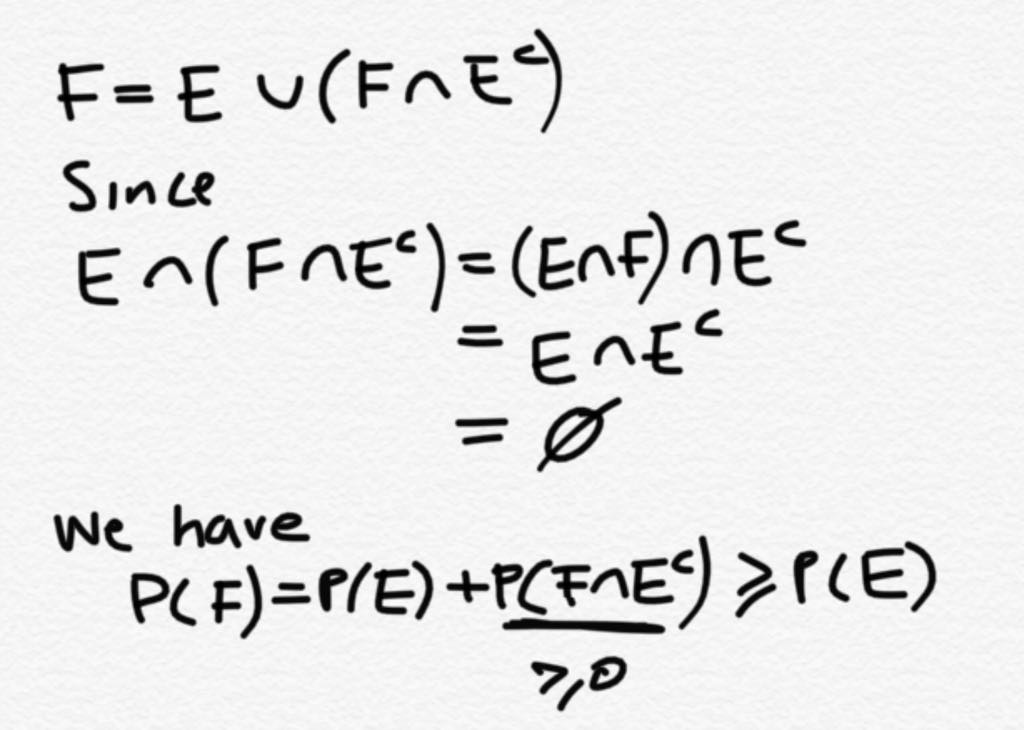 F = E ∪ (F ∩ E^c)
Since
E ∩ (F ∩ E^c) = (E ∩ F) ∩ E^c
= E ∩ E^c
= ∅
We have
P(F) = P(E) + P(F ∩ E^c) ≥ P(E)
≥ 0